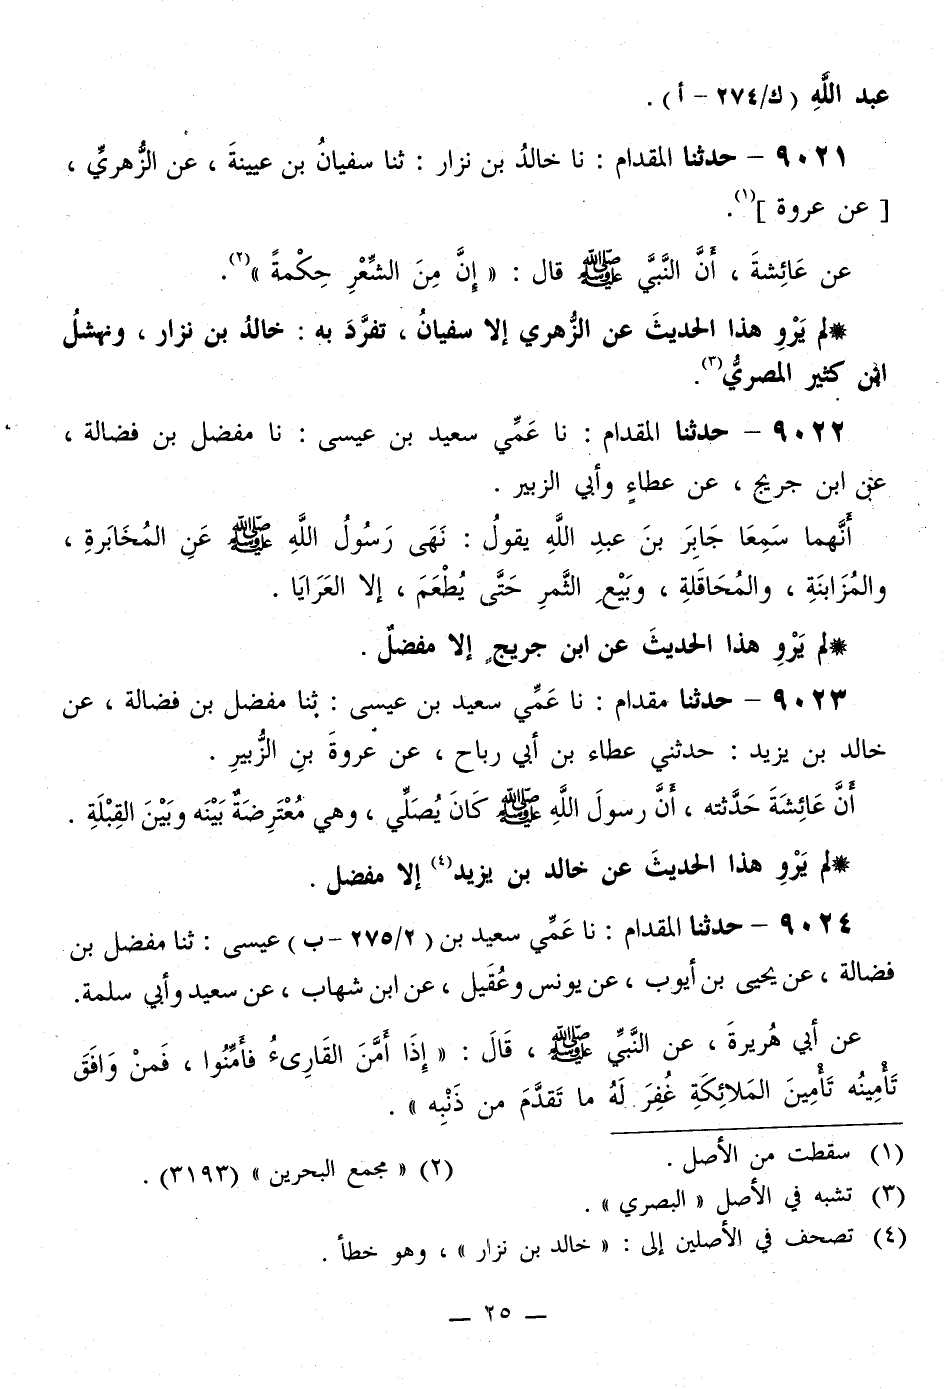 عبد اللَّهِ (ك/٢٧٤ - أ) .
٩٠٢١ - حدثنا المقدام : نا خالدُ بن نزار : ثنا سفيانُ بن عيينةَ ، عن الزُّهريِّ ،
[ عن عروة ](١).
عن عَائِشةَ ، أَنَّ النَّبيَّ ﷺ قال : « إِنَّ مِنَ الشِّعْرِ حِكْمةً »(٢).
*لم يَرْوِ هذا الحديثَ عن الزُّهري إلا سفيانُ ، تفرَّدَ به : خالدُ بن نزار ، ونهشلُ
ابن كثير المصريُّ(٣).
٩٠٢٢ - حدثنا المقدام : نا عَمِّي سعيد بن عيسى : نا مفضل بن فضالة ،
عن ابن جريج ، عن عطاءٍ وأبي الزبير .
أَنَّهما سَمِعَا جَابِرَ بنَ عبدِ اللَّهِ يقولُ : نَهَى رَسُولُ اللَّهِ ﷺ عَنِ المُخَابَرةِ ،
والمُزَابنَةِ ، والمُحَاقَلةِ ، وبَيْعِ الثَّمرِ حَتَّى يُطْعَمَ ، إلا العَرَايَا .
*لم يَرْوِ هذا الحديثَ عن ابن جريجٍ إلا مفضلٌ .
٩٠٢٣ - حدثنا مقدام : نا عَمِّي سعيد بن عيسى : ثنا مفضل بن فضالة ، عن
خالد بن يزيد : حدثني عطاء بن أبي رباح ، عن عروةَ بنِ الزُّبيرِ .
أَنَّ عَائِشَةَ حَدَّثته ، أَنَّ رسولَ اللَّهِ ﷺ كَانَ يُصَلِّي ، وهي مُعْتَرِضَةٌ بَيْنَه وبَيْنَ القِبْلَةِ .
*لم يَرْوِ هذا الحديثَ عن خالد بن يزيد(٤) إلا مفضل .
٩٠٢٤ - حدثنا المقدام : نا عَمِّي سعيد بن (٢٧٥/٢ - ب) عيسى : ثنا مفضل بن
فضالة ، عن يحيى بن أيوب ، عن يونس وعُقَيل ، عن ابن شهاب ، عن سعيد وأبي سلمة.
عن أبي هُريرةَ ، عن النَّبيِّ ﷺ ، قَالَ : « إِذَا أَمَّنَ القَارِىءُ فأَمِّنُوا ، فَمنْ وَافَقَ
تَأْمِينُه تَأْمِينَ المَلائِكَةِ غُفِرَ لَهُ ما تَقدَّمَ من ذَنْبِه » .
(١) سقطت من الأصل . (٢) « مجمع البحرين » (٣١٩٣) .
(٣) تشبه في الأصل « البصري » .
(٤) تصحف في الأصلين إلى : « خالد بن نزار » ، وهو خطأ .
— ٢٥ —